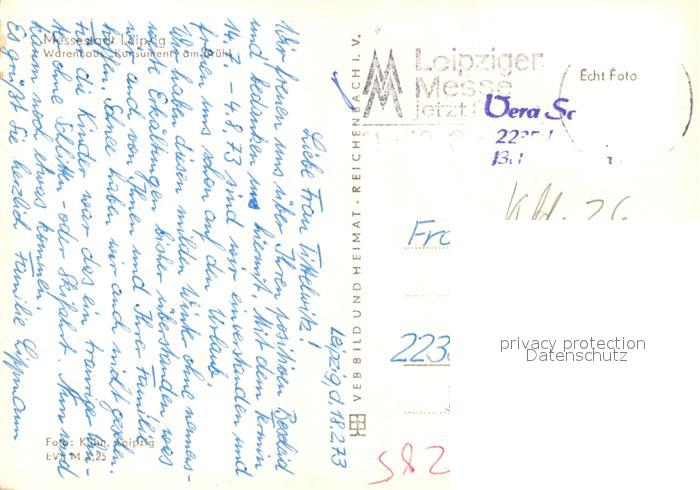 Messestadt Leipzig
Warenhaus "Konsument" am Brühl
Leipzig, d. 18.2.73
Liebe Frau Tittelwitz!
Wir freuen uns über Ihren positiven Bescheid
und bedanken uns hiermit. Mit dem Termin
14.7. – 4.8.73 sind wir einverstanden und
freuen uns schon auf den Urlaub.
Wir haben diesen milden Winter ohne nennens-
werte Erkältungen bisher überstanden was
wir auch von Ihnen und Ihrer Familie
hoffen. Schnee haben wir auch nicht gesehen.
Für die Kinder war das ein trauriger Win-
ter ohne Schlitten- oder Skifahrt. Nun wird
kaum noch etwas kommen.
Es grüßt Sie herzlich Familie Lippmann
Foto: Kühn, Leipzig
VEB BILD UND HEIMAT · REICHENBACH I. V.
Leipziger
Messe
jetzt
Echt Foto
Vera Sc
223
Fr
223
582
privacy protection
Datenschutz